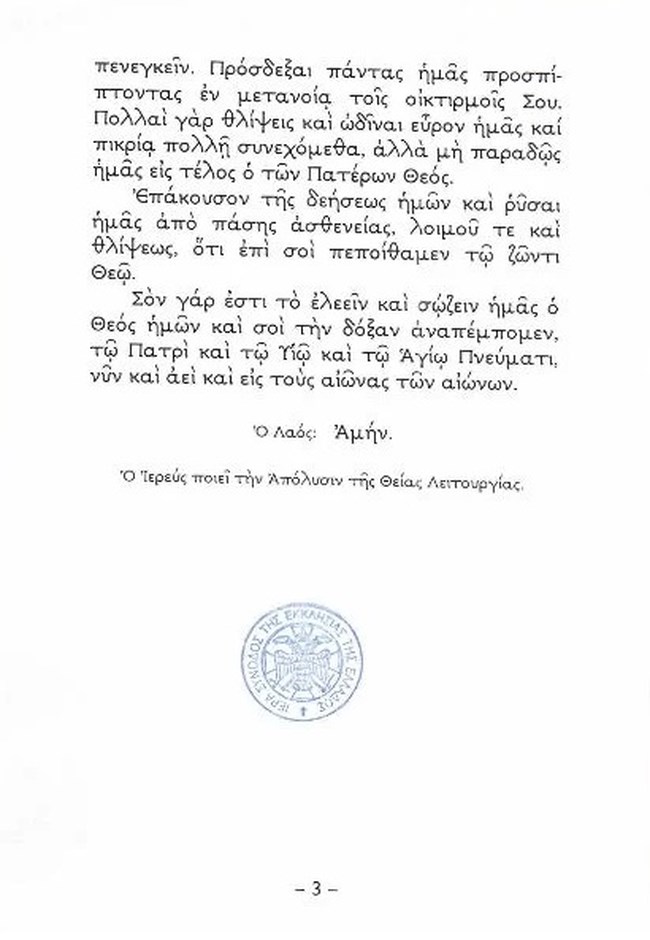 πενεγκεῖν. Πρόσδεξαι πάντας ἡμᾶς προσπί-
πτοντας ἐν μετανοίᾳ τοῖς οἰκτιρμοῖς Σου.
Πολλαὶ γὰρ θλίψεις καὶ ὠδῖναι εὗρον ἡμᾶς καί
πικρίᾳ πολλῇ συνεχόμεθα, ἀλλὰ μὴ παραδῷς
ἡμᾶς εἰς τέλος ὁ τῶν Πατέρων Θεός.
Ἐπάκουσον τῆς δεήσεως ἡμῶν καὶ ῥῦσαι
ἡμᾶς ἀπὸ πάσης ἀσθενείας, λοιμοῦ τε καὶ
θλίψεως, ὅτι ἐπὶ σοὶ πεποίθαμεν τῷ ζῶντι
Θεῷ.
Σὸν γάρ ἐστι τὸ ἐλεεῖν καὶ σῴζειν ἡμᾶς ὁ
Θεός ἡμῶν καὶ σοὶ τὴν δόξαν ἀναπέμπομεν,
τῷ Πατρὶ καὶ τῷ Υἱῷ καὶ τῷ Ἁγίῳ Πνεύματι,
νῦν καὶ ἀεὶ καὶ εἰς τοὺς αἰῶνας τῶν αἰώνων.
Ὁ Λαός: Ἀμήν.
Ὁ Ἱερεύς ποιεῖ τὴν Ἀπόλυσιν τῆς Θείας Λειτουργίας.
ΙΕΡΑ ΣΥΝΟΔΟΣ ΤΗΣ ΕΚΚΛΗΣΙΑΣ ΤΗΣ ΕΛΛΑΔΟΣ
– 3 –